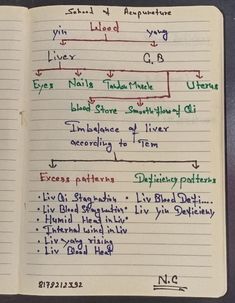 School of Acupuncture
Wood
yin yang
Liver G.B
Eyes Nails Tendon Muscle Uterus
blood Store Smooth flow of Qi
Imbalance of liver
according to Tcm
Excess patterns Deficiency patterns
• Liv Qi Stagnation • Liv Blood Defi....
• Liv Blood Stagnation • Liv yin Deficiency
• Humid Heat in Liv
• Internal wind in Liv
• Liv yang rising
• Liv Blood Heat
8178212392 N.C